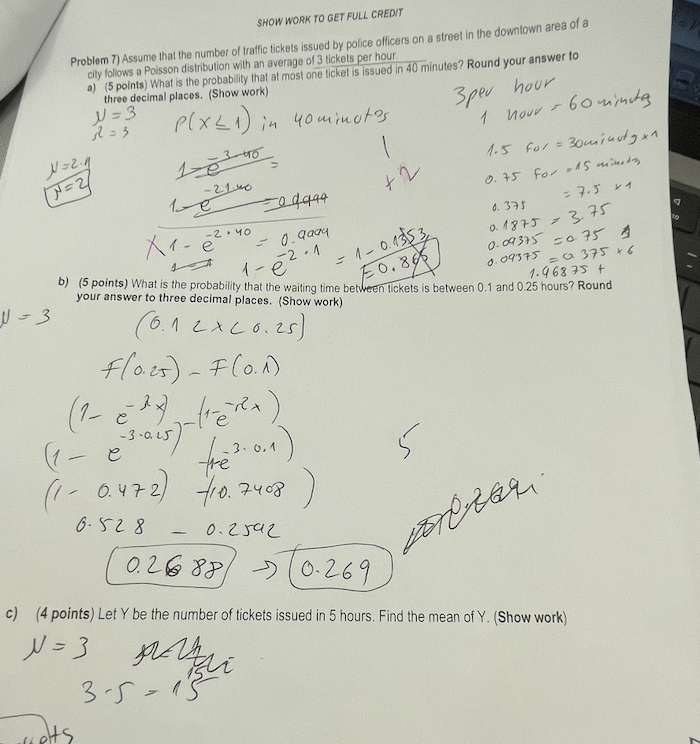 SHOW WORK TO GET FULL CREDIT
Problem 7) Assume that the number of traffic tickets issued by police officers on a street in the downtown area of a
city follows a Poisson distribution with an average of 3 tickets per hour.
a) (5 points) What is the probability that at most one ticket is issued in 40 minutes? Round your answer to
three decimal places. (Show work)
N = 3
λ = 3
P(X ≤ 1) in 40 minutes
3 per hour
1 hour = 60 minutes
1.5 for = 30 minutes × 1
0.75 for = 15 minutes
= 7.5 × 1
0.375
0.1875 = 3.75
0.09375 = 0.75
0.09375 = 0.375 × 6
1.96875 +
N = 2·1
N = 2
+2
1 - e^-3·40 =
1 - e^-21·40 = 0.9999
X 1 - e^-2·40 = 0.9999
1 - e^-2·1 = 1 - 0.1353
= 0.865
b) (5 points) What is the probability that the waiting time between tickets is between 0.1 and 0.25 hours? Round
your answer to three decimal places. (Show work)
N = 3
(0.1 < x < 0.25)
F(0.25) - F(0.1)
(1 - e^-λx) - (1 - e^-λx)
(1 - e^-3·0.25) - (1 - e^-3·0.1)
(1 - 0.472) - (1 - 0.7408)
0.528 - 0.2592
0.2688 → 0.269
5
c) (4 points) Let Y be the number of tickets issued in 5 hours. Find the mean of Y. (Show work)
N = 3
15
3·5 = 15